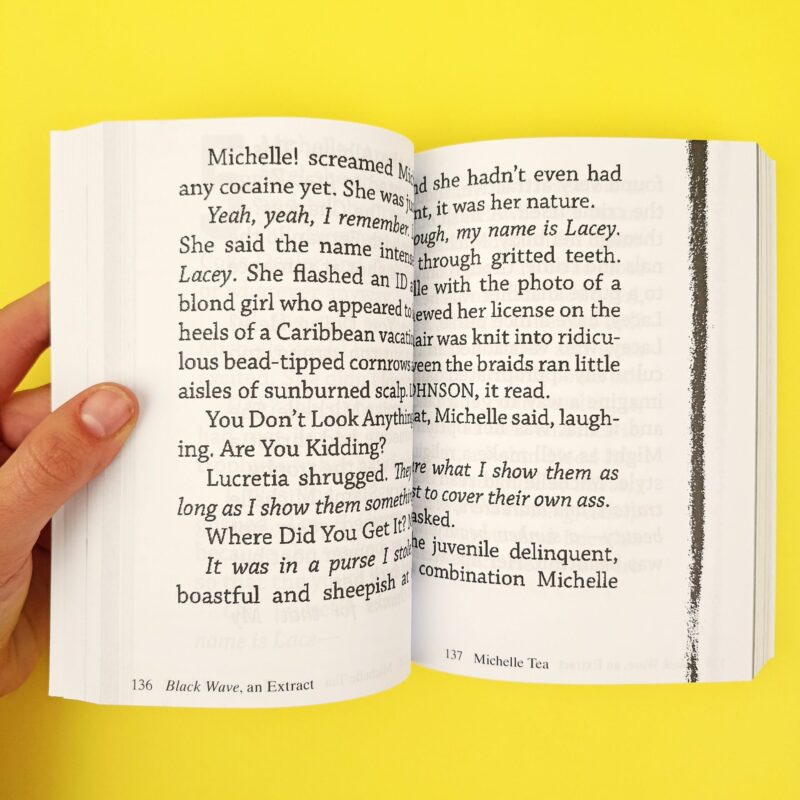 Michelle! screamed she hadn't even had
any cocaine yet. She was it was her nature.
Yeah, yeah, I remember. my name is Lacey.
She said the name through gritted teeth.
Lacey. She flashed an ID with the photo of a
blond girl who appeared to her license on the
heels of a Caribbean was knit into ridicu-
lous bead-tipped cornrows. the braids ran little
aisles of sunburned scalp. it read.
You Don't Look Michelle said, laugh-
ing. Are You Kidding?
Lucretia shrugged. what I show them as
long as I show them to cover their own ass.
Where Did You Get It? asked.
It was in a purse I juvenile delinquent,
boastful and sheepish at combination Michelle
136 Black Wave, an Extract
137 Michelle Tea